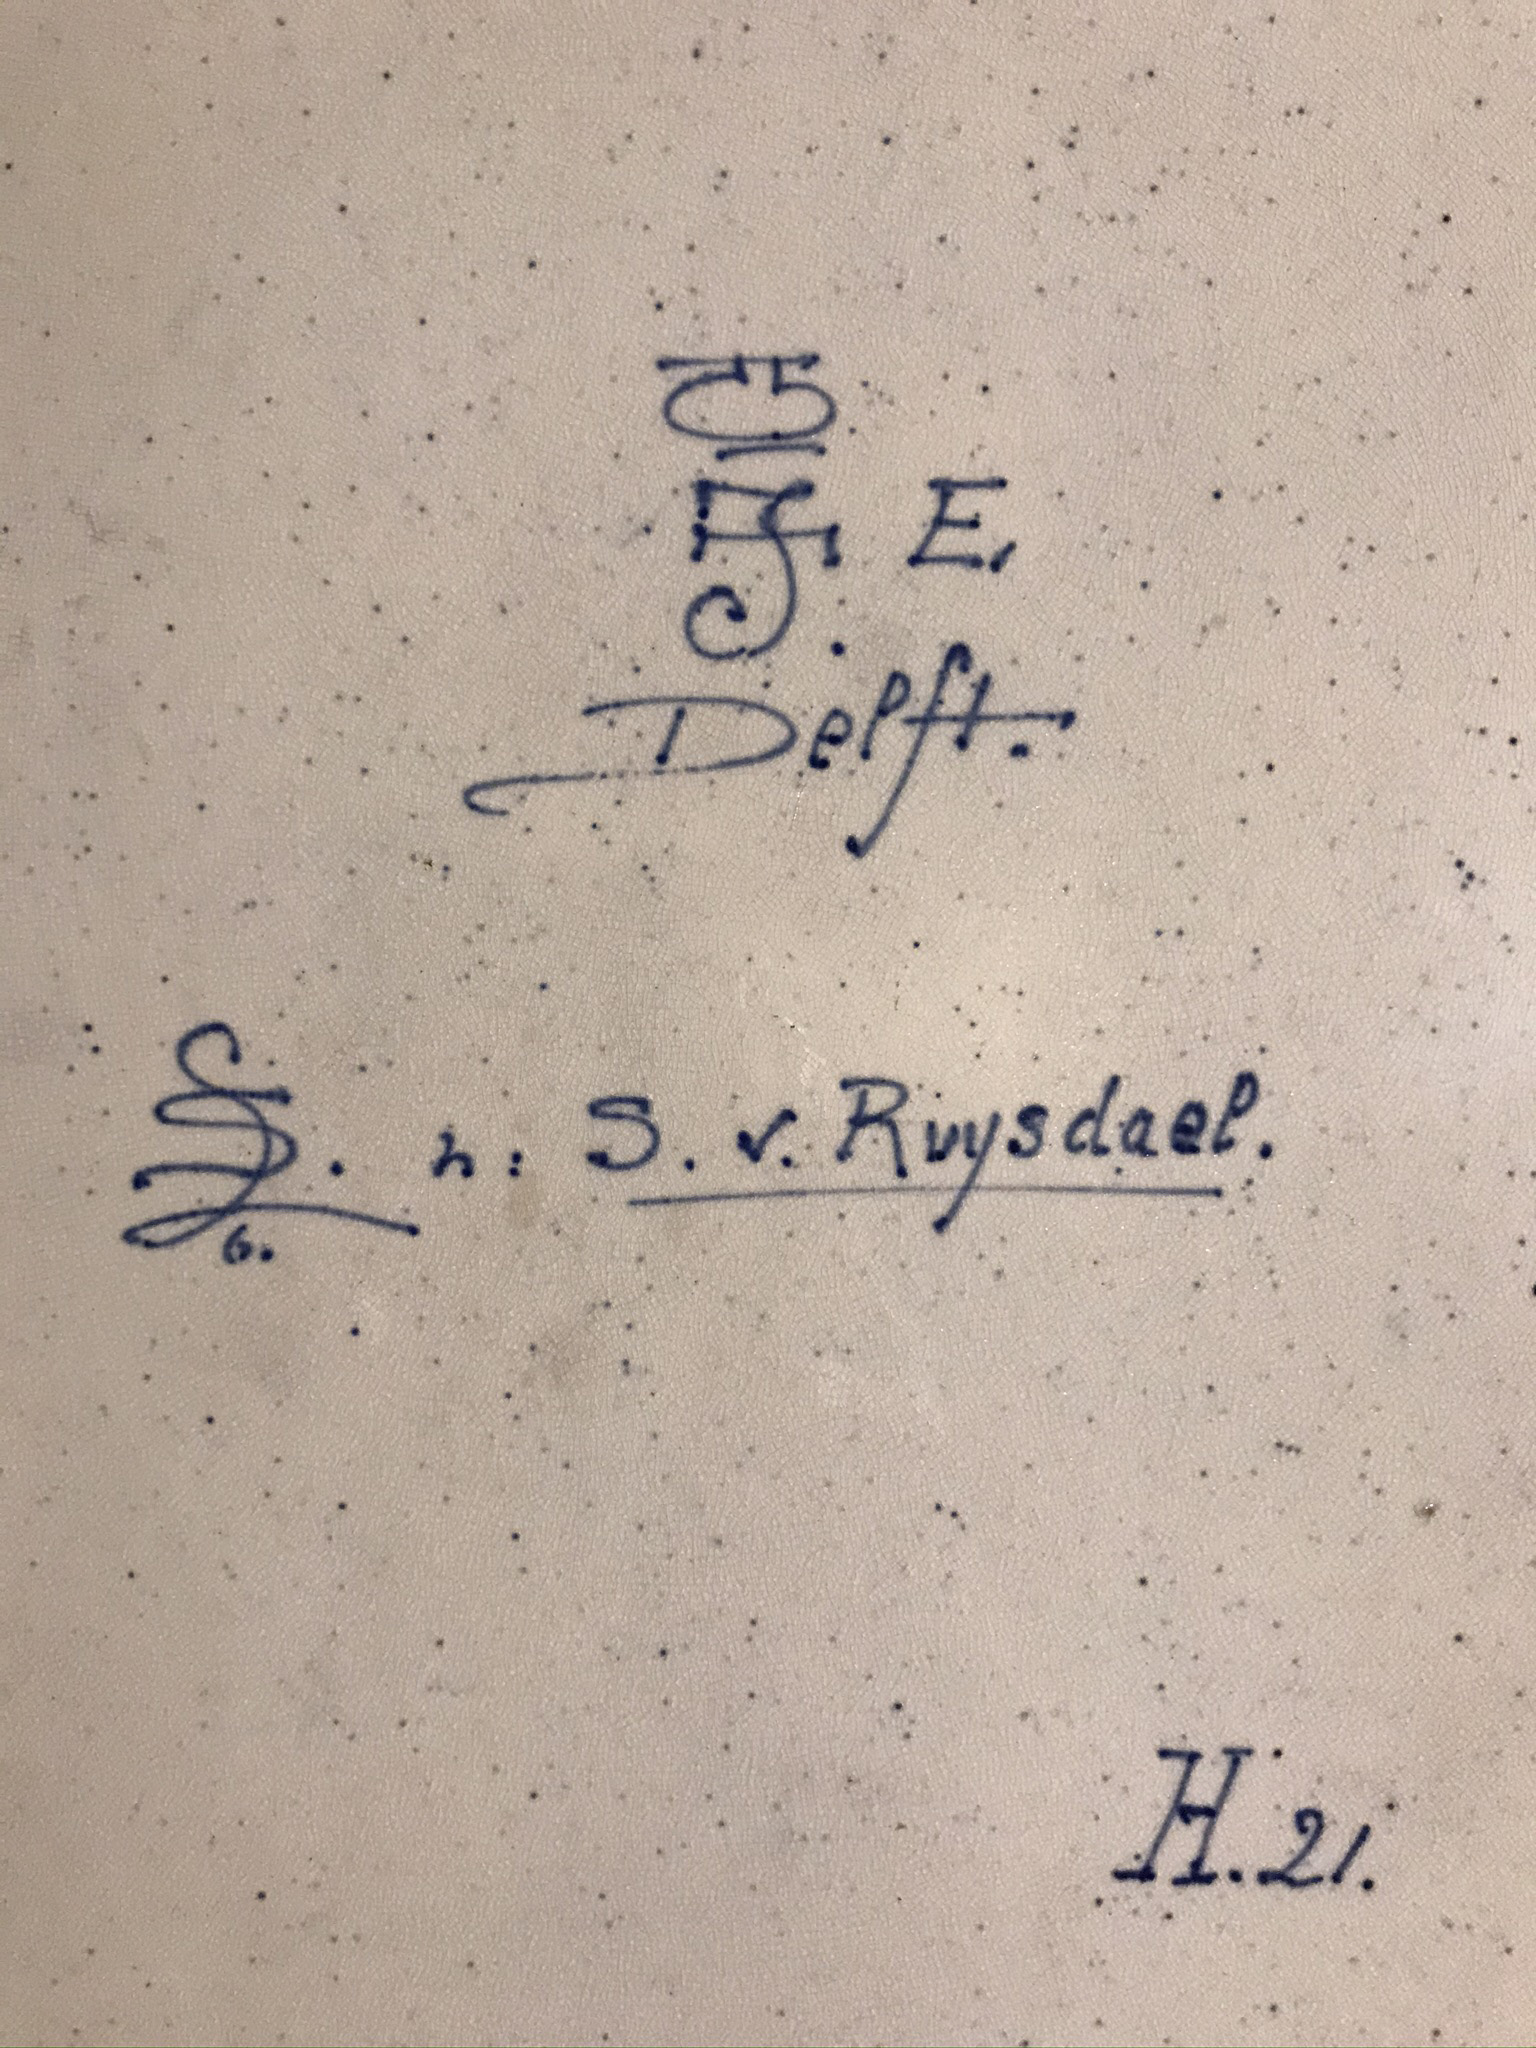 E.
Delft.
n: S. v. Ruysdael.
6.
H. 21.